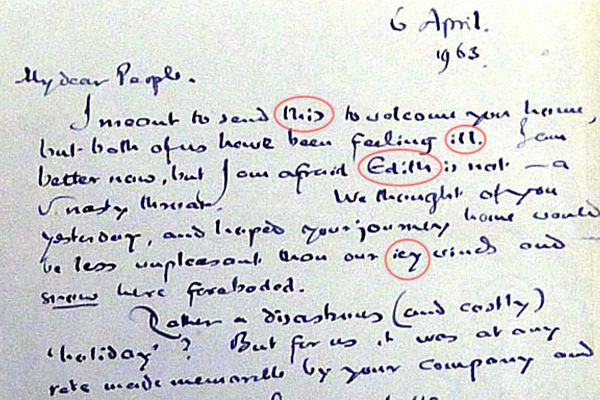 6 April.
1963.
My dear People.
I meant to send this to welcome you home,
but both of us have been feeling ill. I am
better now, but I am afraid Edith is not — a
v. nasty throat. We thought of you
yesterday, and hoped your journey home would
be less unpleasant than our icy winds and
snow here foreboded.
Rather a disastrous (and costly)
'holiday'? But for us it was at any
rate made memorable by your company and